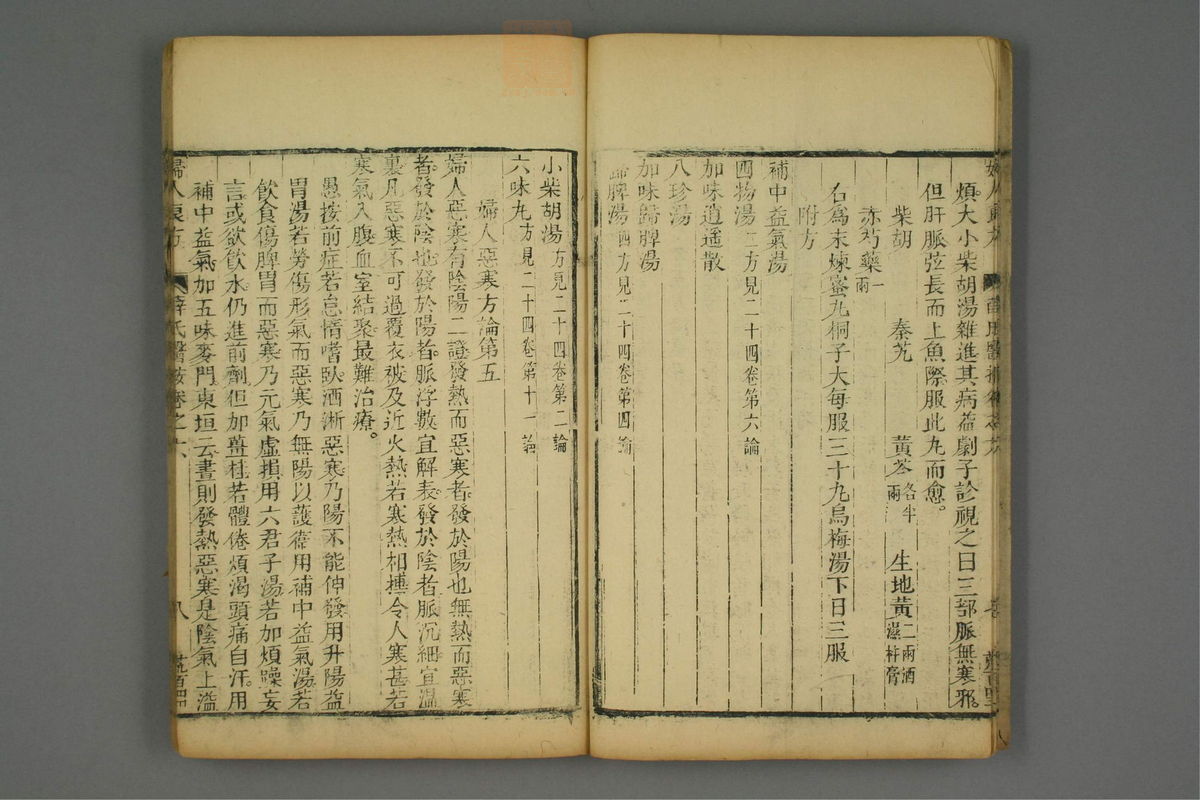 煩大小柴胡湯雜進其病益劇予診視之曰三部脈無寒邪
但肝脈弦長而上魚際服此丸而愈。
柴胡 秦艽 黃芩各半兩 生地黃二兩酒濕杵膏
赤芍藥一兩
右為末煉蜜丸桐子大每服三十丸烏梅湯下日三服
附方
補中益氣湯
四物湯二方見二十四卷第六論
加味逍遙散
八珍湯
加味歸脾湯
歸脾湯四方見二十四卷第四論
小柴胡湯方見二十四卷第二論
六味丸方見二十四卷第十一論
婦人惡寒方論第五
婦人惡寒有陰陽二證發熱而惡寒者發於陽也無熱而惡寒
者。發於陰也發於陽者。脈浮數宜解表。發於陰者脈沉細宜溫
裏凡惡寒不可過覆衣被及近火熱若寒熱相搏令人寒甚若
寒氣入腹血室結聚最難治療。
愚按前症若怠惰嗜臥洒淅惡寒乃陽不能伸發用升陽益
胃湯若勞傷形氣而惡寒乃無陽以護衛用補中益氣湯若
飲食傷脾胃而惡寒乃元氣虛損用六君子湯若加煩躁妄
言或欲飲水仍進前劑但加薑桂若體倦煩渴頭痛自汗。用
補中益氣加五味麥門。東垣云晝則發熱惡寒是陰氣上溢
婦人良方 薛氏醫按卷之六 八